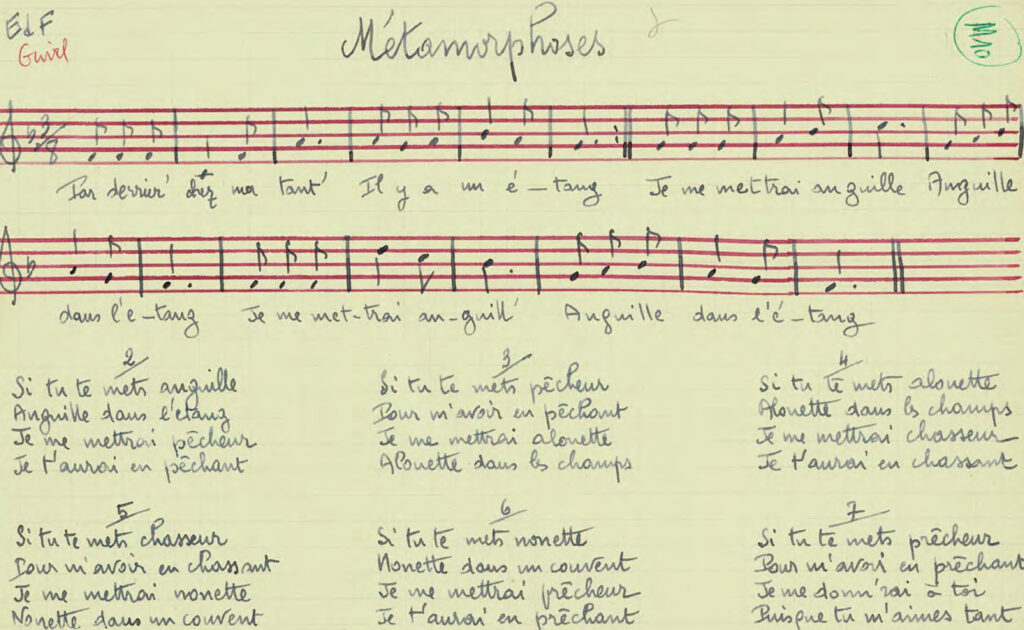 EdF
Métamorphoses
M10
Guirl
3/8
Par derrier' chez ma tant' Il y a un é-tang Je me mettrai anguille Anguille
dans l'é-tang Je me met-trai an-guill' Anguille dans l'é-tang
2
Si tu te mets anguille
Anguille dans l'étang
Je me mettrai pêcheur
Je t'aurai en pêchant
3
Si tu te mets pêcheur
Pour m'avoir en pêchant
Je me mettrai alouette
Alouette dans ls champs
4
Si tu te mets alouette
Alouette dans ls champs
Je me mettrai chasseur
Je t'aurai en chassant
5
Si tu te mets chasseur
Pour m'avoir en chassant
Je me mettrai nonette
Nonette dans un couvent
6
Si tu te mets nonette
Nonette dans un couvent
Je me mettrai prêcheur
Je t'aurai en prêchant
7
Si tu te mets prêcheur
Pour m'avoir en prêchant
Je me donn'rai à toi
Puisque tu m'aimes tant